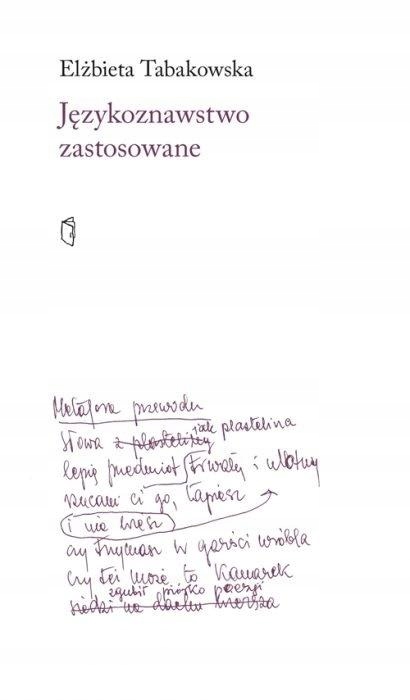 Elżbieta Tabakowska
Językoznawstwo
zastosowane
Metafora przewodu
jak plastelina
Słowa z plasteliny
lepię przedmiot trwały i ulotny
rzucam ci go, łapiesz
i nie wiesz
czy trzymasz w garści wróbla
czy też może to kanarek
zgubił piórko poezji
siedzi na dachu wiersza